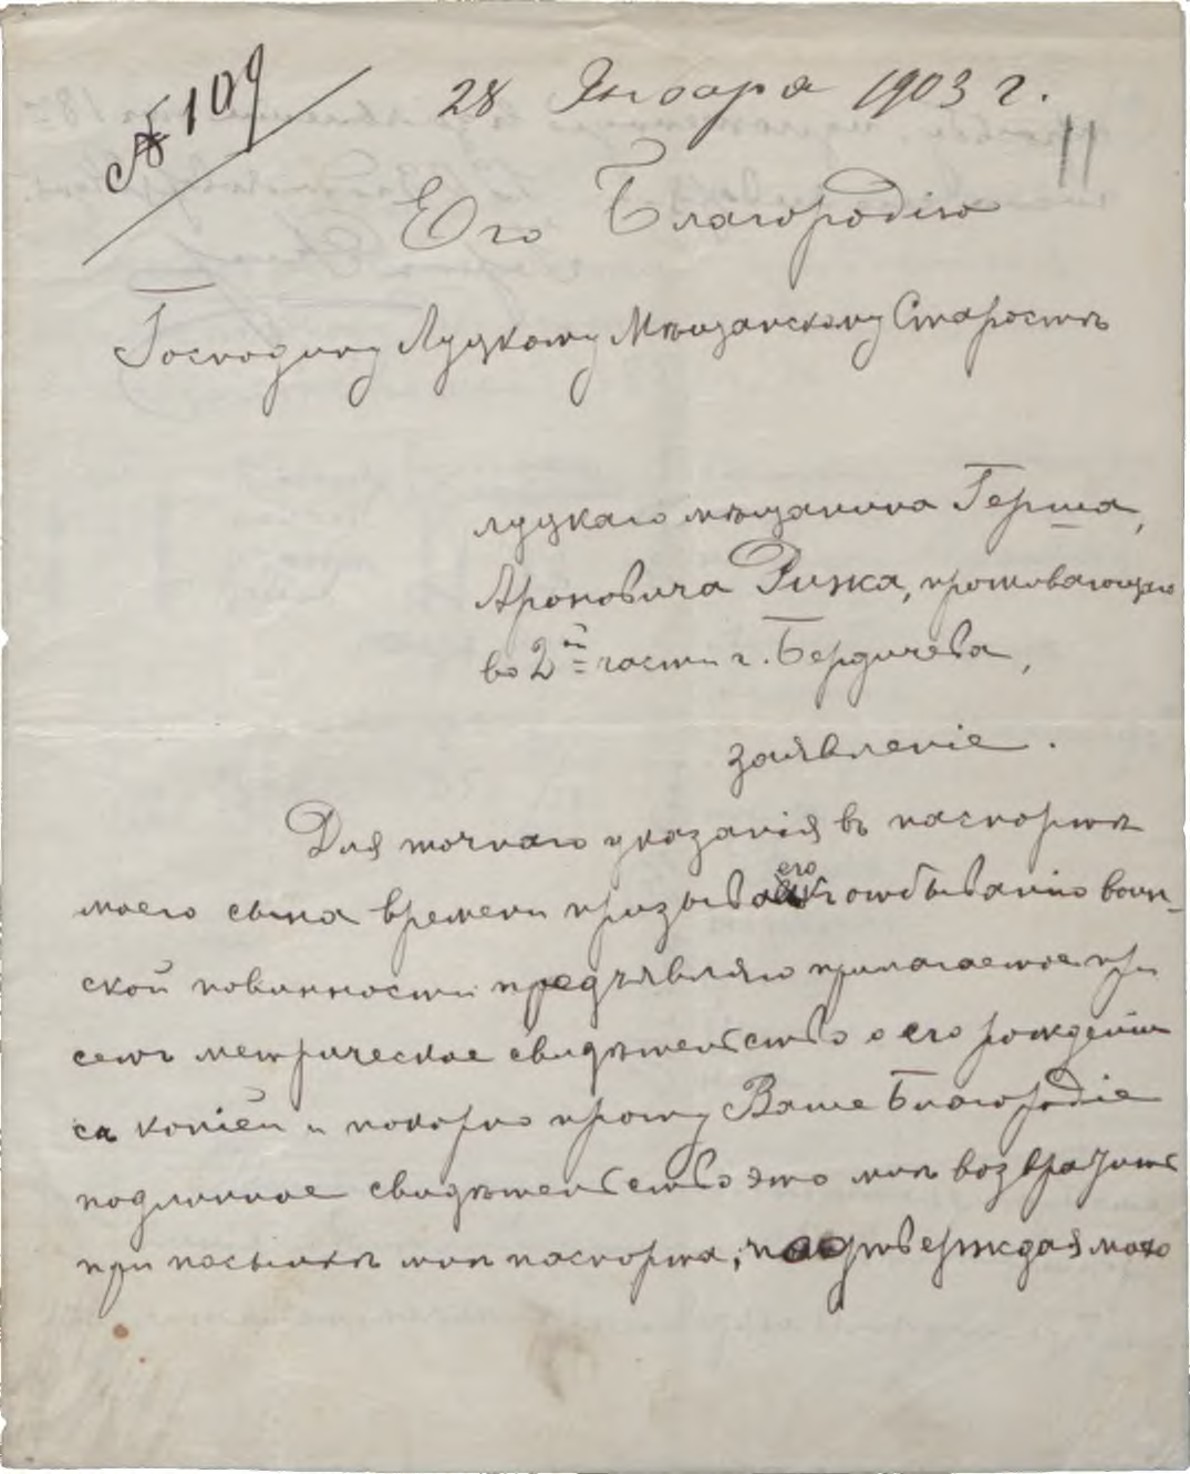 № 109
28 Января 1903 г.
11
Его Благородію
Господину Луцкому Мѣщанскому Старостѣ
луцкаго мѣщанина Герша
Ароновича Ринка, проживающаго
во 2й части г. Бердичева,
заявленіе.
Для точнаго указанія въ паспортѣ
моего сына времени призыва его къ отбыванію воин-
ской повинности предъявляю прилагаемое при
семъ метрическое свидѣтельство о его рожденіи
съ копіей и покорно прошу Ваше Благородіе
подлинное свидѣтельство это мнѣ возвратить
при посылкѣ мнѣ паспорта, подтверждая мою